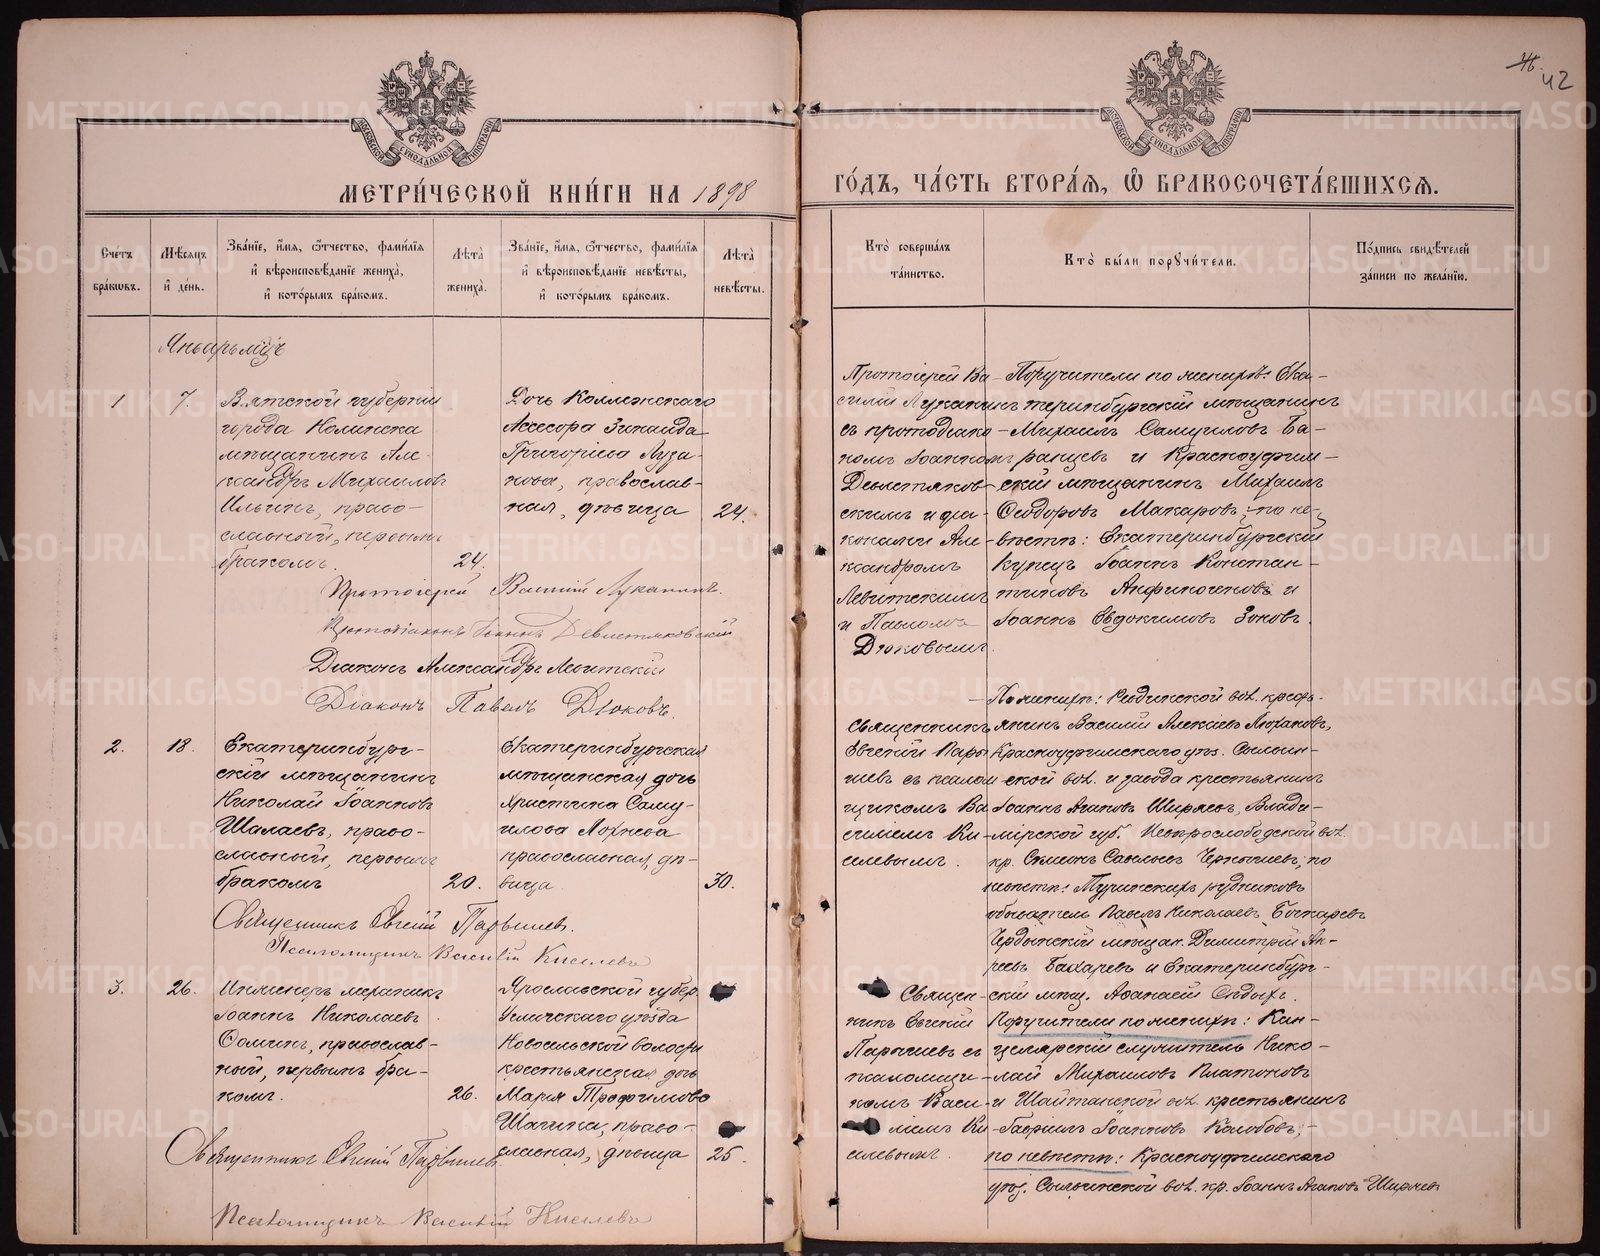 42
МОСКОВСКОЙ СѴНОДАЛЬНОЙ ТИПОГРАФІИ
МОСКОВСКОЙ СѴНОДАЛЬНОЙ ТИПОГРАФІИ
МЕТРИ́ЧЕСКОЙ КНИ́ГИ НА 1898
ГО́ДЪ, ЧА́СТЬ ВТОРА́Я, Ѽ БРАКОСОЧЕТА́ВШИХСЯ.
Сче́тъ бра́кѡвъ.
Мѣ́сяцъ и҆ де́нь.
Зва́нїе, и҆́мя, ѻ҆́тчество, фами́лїя и҆ вѣроисповѣ́данїе жениха̀, и҆ кото́рымъ бра́комъ.
Лѣта̀ жениха̀.
Зва́нїе, и҆́мя, ѻ҆́тчество, фами́лїя и҆ вѣроисповѣ́данїе невѣ́сты, и҆ кото́рымъ бра́комъ.
Лѣта̀ невѣ́сты.
Кто̀ соверша́лъ та́инство.
Кто̀ бы́ли порꙋчи́тели.
По́дпись свидѣ́телей за́писи по жела́нїю.
Январь мцъ
1
7.
Вятской губерніи
города Нолинска
мѣщанинъ Але-
ксандръ Михаиловъ
Ильинъ, право-
славный, первымъ
бракомъ.
24.
Дочь Коллежскаго
Ассесора Зинаида
Григоріева Луза-
нова, православ-
ная, дѣвица
24.
Протоіерей Ва-
силій Луканинъ
съ протодіако-
номъ Іоанномъ
Девлетяков-
скимъ и діа-
конами Але-
ксандромъ
Левитскимъ
и Павломъ
Дюковымъ.
Поручители по женихѣ: Ека-
теринбургскій мѣщанинъ
Михаилъ Самуиловъ Ба-
ранцевъ и Красноуфим-
скій мѣщанинъ Михаилъ
Ѳеодоровъ Макаровъ; по не-
вѣстѣ: Екатеринбургскій
купецъ Іоаннъ Констан-
тиновъ Анфиногеновъ и
Іоаннъ Евдокимовъ Зоновъ.
Протоіерей Василій Луканинъ.
Протодіаконъ Іоаннъ Девлетяковскій
Діаконъ Александръ Левитскій
Діаконъ Павелъ Дюковъ.
2.
18.
Екатеринбург-
скій мѣщанинъ
Николай Іоанновъ
Шалаевъ, право-
славный, первымъ
бракомъ
20.
Екатеринбургская
мѣщанская дочь
Христина Саму-
илова
православная, дѣ-
вица
30.
Священникъ
Евгеній Пары-
шевъ съ псалом-
щикомъ Ва-
силіемъ Ки-
селевымъ.
По женихѣ: вол. кресть-
янинъ Василій Алексіевъ
Красноуфимскаго уѣз. Сылвин-
ской вол. и завода крестьянинъ
Іоаннъ Агаповъ Ширяевъ, Влади-
мірской губ. вол.
кр. Симеонъ Савельевъ Чернышевъ; по
невѣстѣ: Турьинскихъ рудниковъ
обыватель Павелъ Николаевъ Бочкаревъ
Чердынскій мѣщан. Димитрій Ан-
реевъ Бахаревъ и Екатеринбург-
скій мѣщ. Аѳанасій
Священникъ Евгеній Парышевъ.
Псаломщикъ Василій Киселевъ
3.
26.
Инженеръ механикъ
Іоаннъ Николаевъ
Ѳоминъ, православ-
ный, первымъ бра-
комъ.
26.
Ярославской губер.
Угличскаго уѣзда
Новосельской волости
крестьянская дочь
Марія Трофимова
Шагина, право-
славная, дѣвица
25.
Священ-
никъ Евгеній
Парышевъ съ
псаломщи-
комъ Васи-
ліемъ Ки-
селевымъ.
Поручители по женихѣ: Кан-
целярскій служитель Нико-
лай Михаиловъ Платоновъ
и Шайтанской вол. крестьянинъ
Гавріилъ Іоанновъ Колобовъ;
по невѣстѣ: Красноуфимскаго
уѣз. Сылвинской вол. кр. Іоаннъ Агаповъ Ширяевъ
Священникъ Евгеній Парышевъ.
Псаломщикъ Василій Киселевъ
METRIKI.GASO-URAL.RU